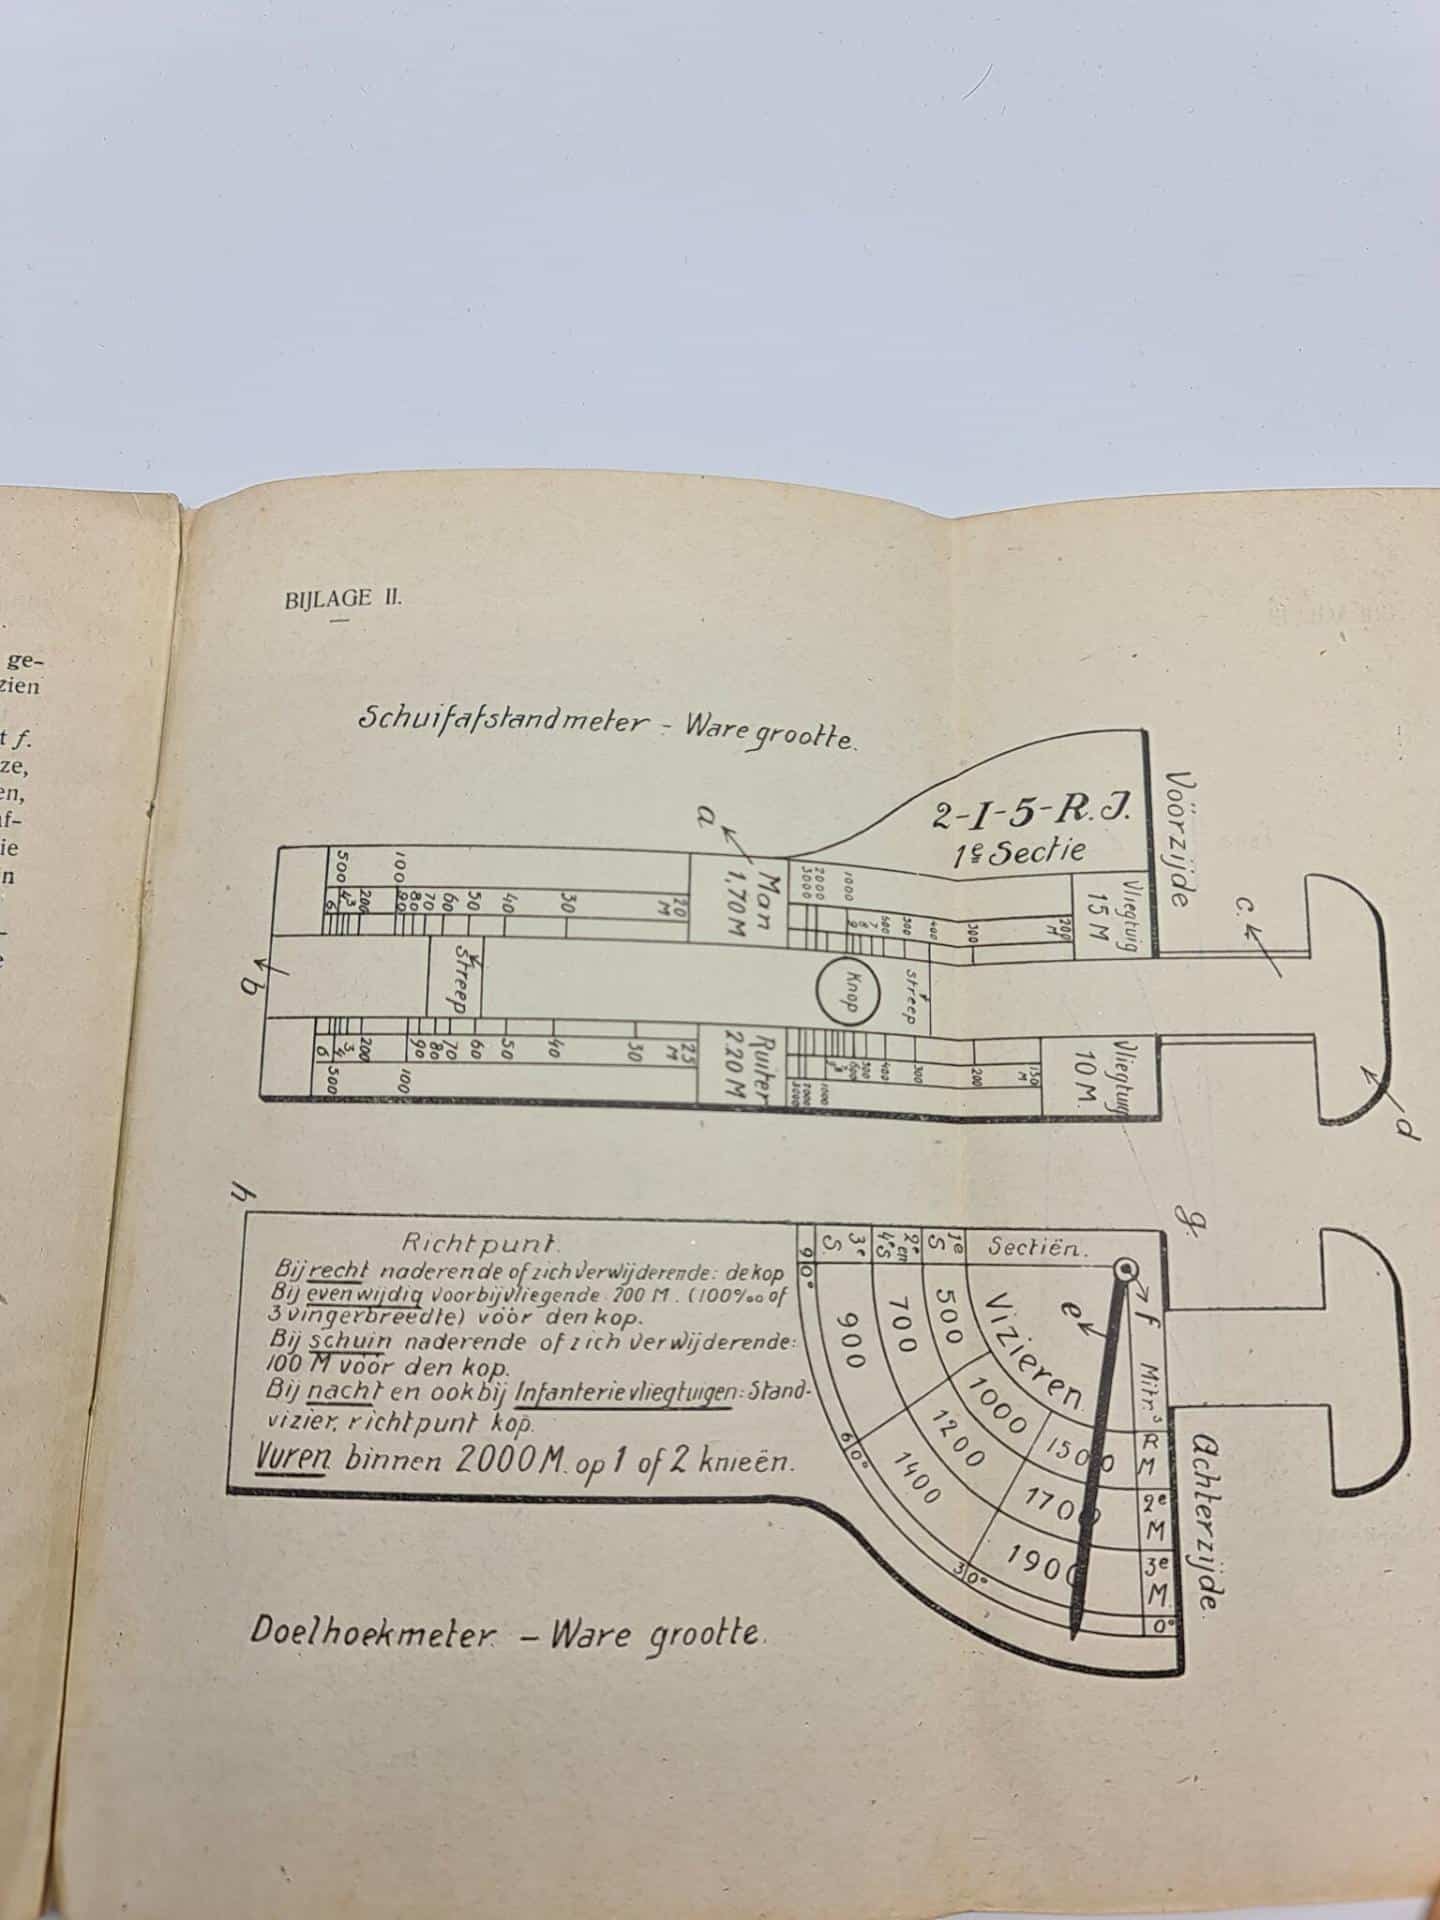 ge-
zien
t f.
ze,
en,
af-
ie
n
BIJLAGE II.
Schuifafstandmeter - Ware grootte.
Voorzijde
2-I-5-R.J.
1e Sectie
a
b
c.
d
Man
1,70 M
Vliegtuig
15 M
500 100
6 4 3 200 90 80 70 60 50 40 30 20 M
3000 2000 1000
9 8 7 600 500 400 300 200 M
Streep
Knop
streep
Ruiter
2.20 M
Vliegtuig
10 M.
6 4 3 200 90 80 70 60 50 40 30 25 M
500 100
600 500 400 300 200 150 M
3000 2000 1000
h
g.
Richtpunt.
Bij recht naderende of zich verwijderende: de kop
Bij evenwijdig voorbijvliegende 200 M. (100‰ of
3 vingerbreedte) vóór den kop.
Bij schuin naderende of zich verwijderende:
100 M vóór den kop.
Bij nacht en ook bij Infanterievliegtuigen: Stand-
vizier, richtpunt kop.
Vuren binnen 2000 M. op 1 of 2 knieën.
Sectiën.
1e S
2e en 4e S
3e S.
90°
Vizieren
e
f
500 1000 1500
700 1200 1700
900 1400 1900
60°
30°
0°
Mitr.s
R M
2e M
3e M.
Achterzijde.
Doelhoekmeter. - Ware grootte.